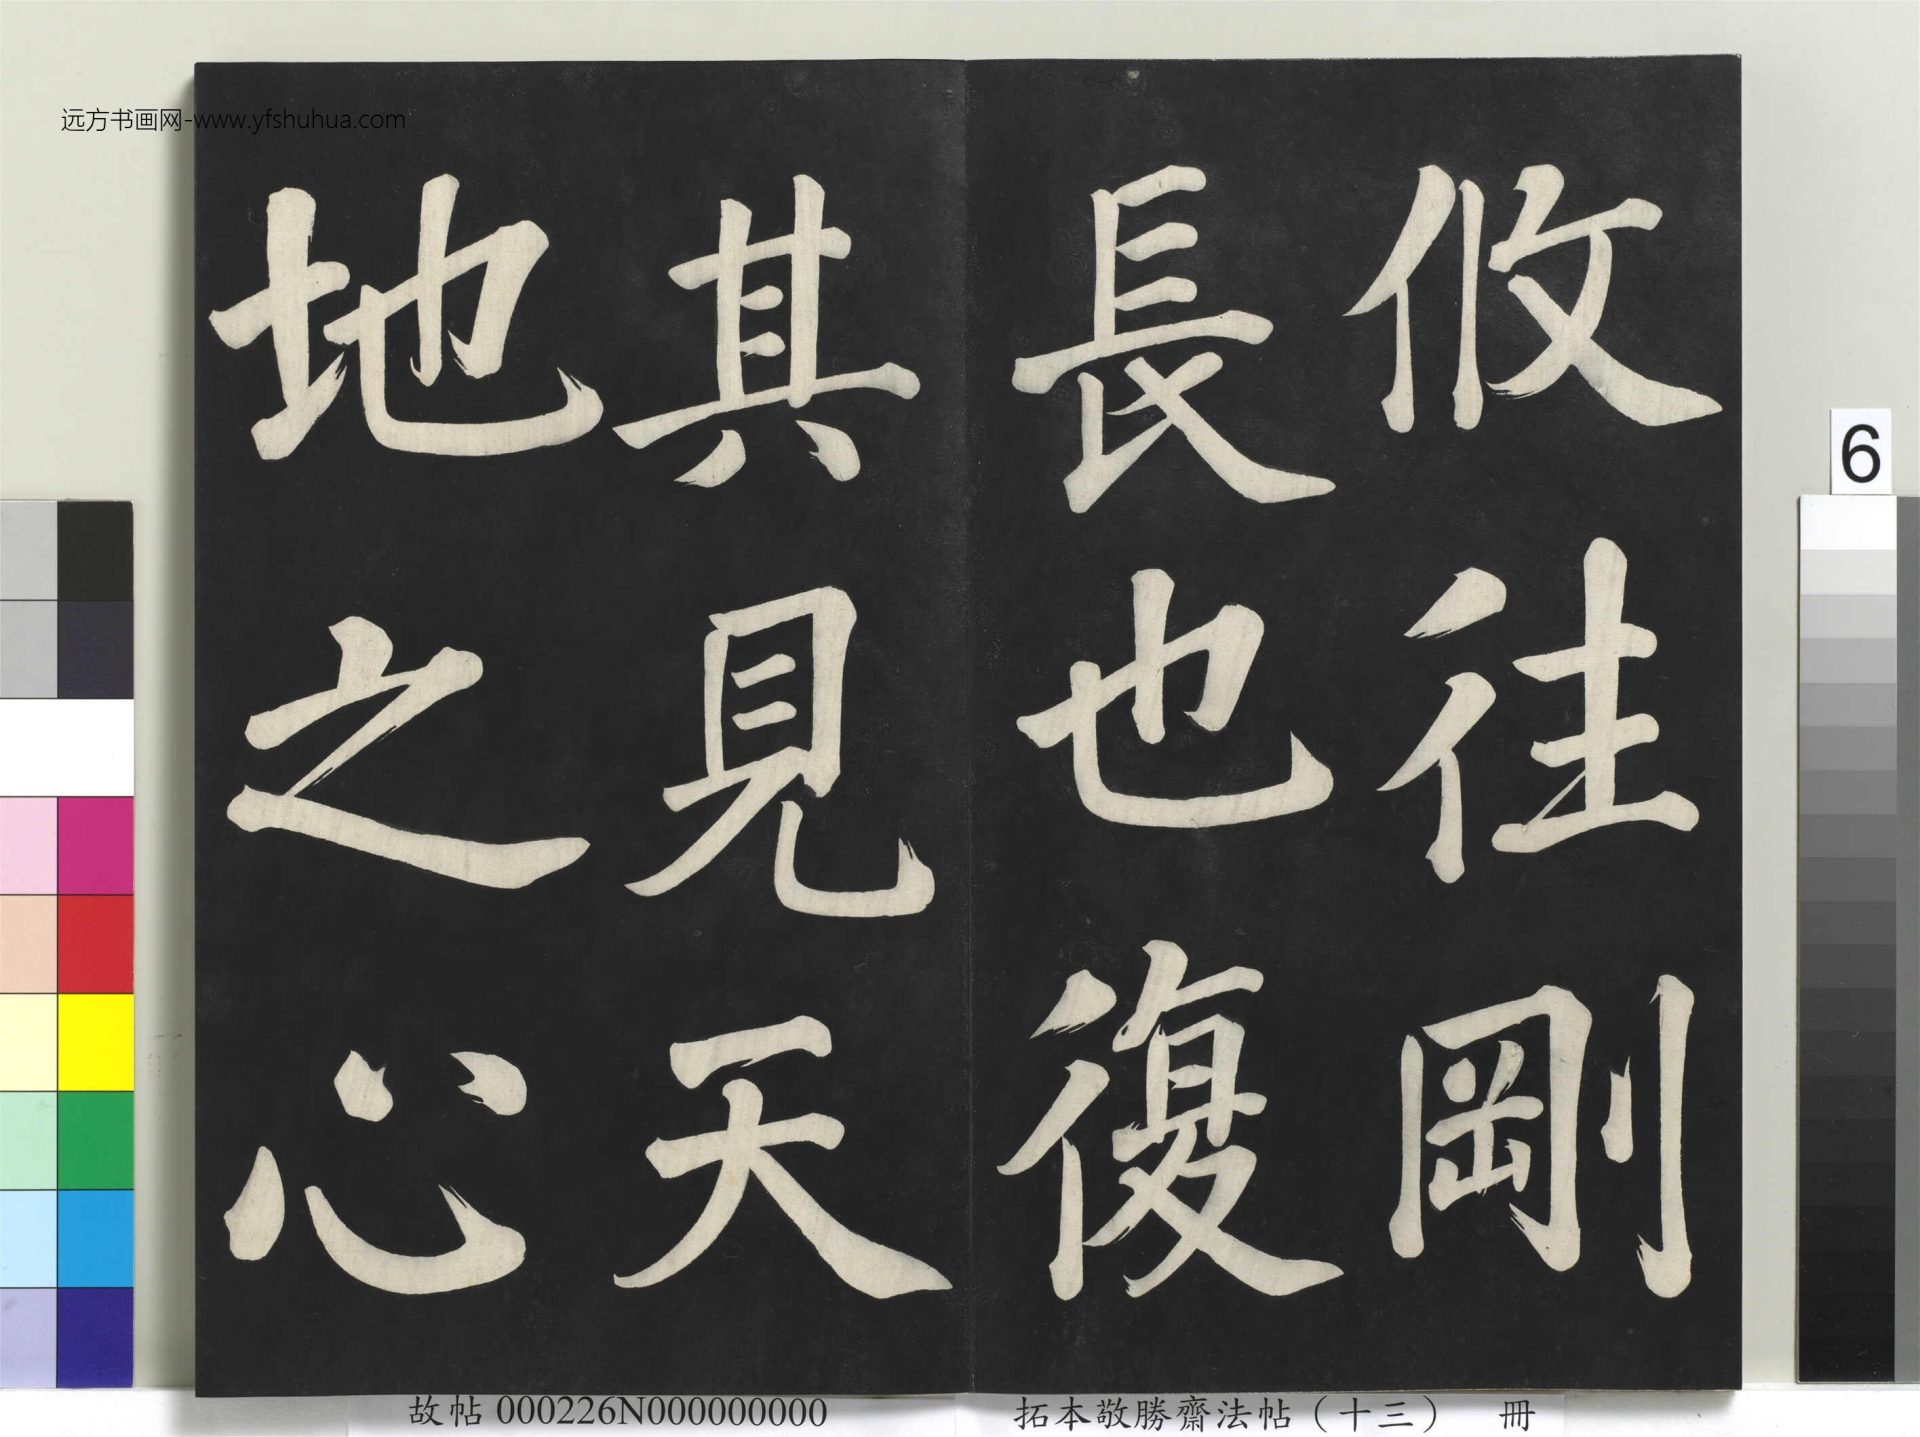 远方书画网-www.yfshuhua.com
攸往剛
長也復
其見天
地之心
6
故帖000226N000000000
拓本敬勝齋法帖（十三） 冊